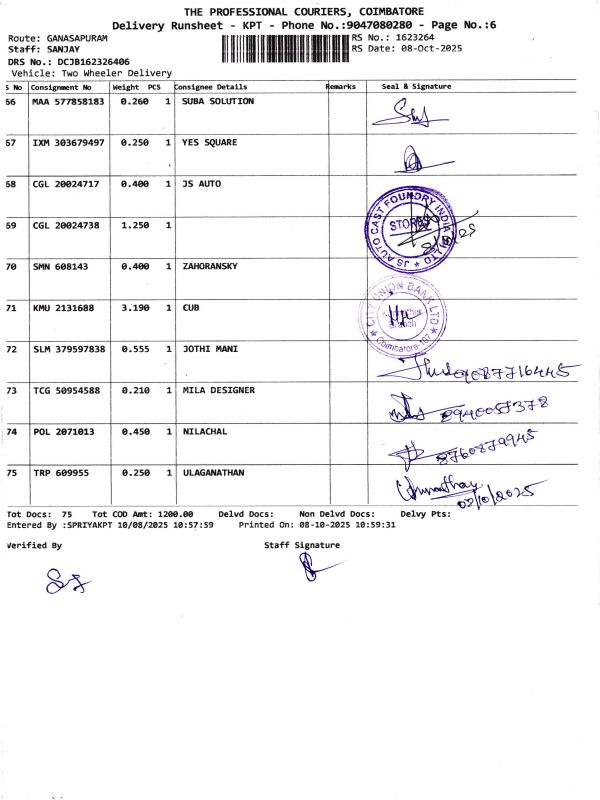 THE PROFESSIONAL COURIERS, COIMBATORE
Delivery Runsheet - KPT - Phone No.:9047080280 - Page No.:6
Route: GANASAPURAM
RS No.: 1623264
Staff: SANJAY
RS Date: 08-Oct-2025
DRS No.: DCJB162326406
Vehicle: Two Wheeler Delivery
S No Consignment No Weight PCS Consignee Details Remarks Seal & Signature
66 MAA 577858183 0.260 1 SUBA SOLUTION
67 IXM 303679497 0.250 1 YES SQUARE
68 CGL 20024717 0.400 1 JS AUTO
JS AUTO CAST FOUNDRY INDIA
STORES
69 CGL 20024738 1.250 1
70 SMN 608143 0.400 1 ZAHORANSKY
71 KMU 2131688 3.190 1 CUB
CITY UNION BANK LTD
Branch
Coimbatore-107
72 SLM 379597838 0.555 1 JOTHI MANI
73 TCG 50954588 0.210 1 MILA DESIGNER
74 POL 2071013 0.450 1 NILACHAL
8760879945
75 TRP 609955 0.250 1 ULAGANATHAN
Tot Docs: 75 Tot COD Amt: 1200.00 Delvd Docs: Non Delvd Docs: Delvy Pts:
Entered By :SPRIYAKPT 10/08/2025 10:57:59 Printed On: 08-10-2025 10:59:31
Verified By Staff Signature